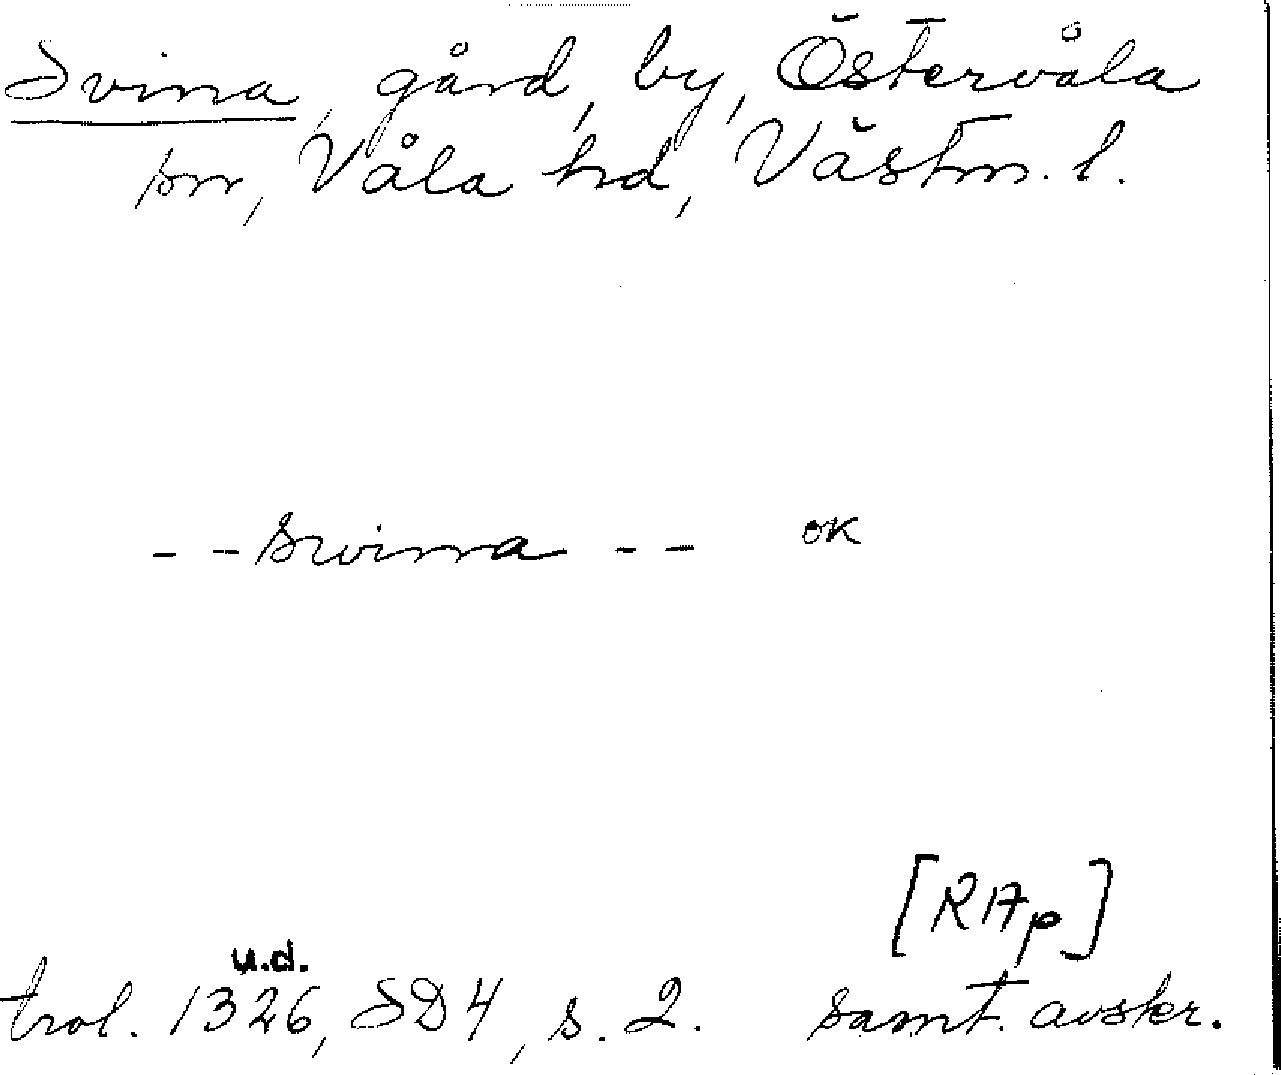 Svina, gård, by, Östervåla
sn, Våla hd, Västm. l.
- - swina - - OK
[RAp]
u.d.
trol. 1326, SD 4, s. 2. samt. avskr.